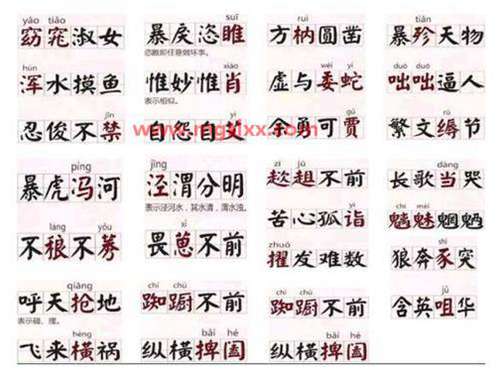 yǎo tiǎo
窈窕淑女
hún
浑水摸鱼
jīn
忍俊不禁
píng
暴虎冯河
láng yǒu
不稂不莠
qiāng
呼天抢地
表示碰、撞。
hèng
飞来横祸
suī
暴戾恣睢
xiào
惟妙惟肖
表示相似。
自怨自艾
jīng
泾渭分明
表示泾河水，其水清，渭水浊。
xǐ
畏葸不前
chí chú
踟蹰不前
bǎi hé
纵横捭阖
ruì
方枘圆凿
wēi yí
虚与委蛇
gǔ
余勇可贾
zī jū
趑趄不前
yì
苦心孤诣
zhuó
擢发难数
chí chú
踟蹰不前
bǎi hé
纵横捭阖
tiǎn
暴殄天物
duō duō
咄咄逼人
rù
繁文缛节
dàng
长歌当哭
魑魅魍魉
shǐ
狼奔豕突
jǔ
含英咀华